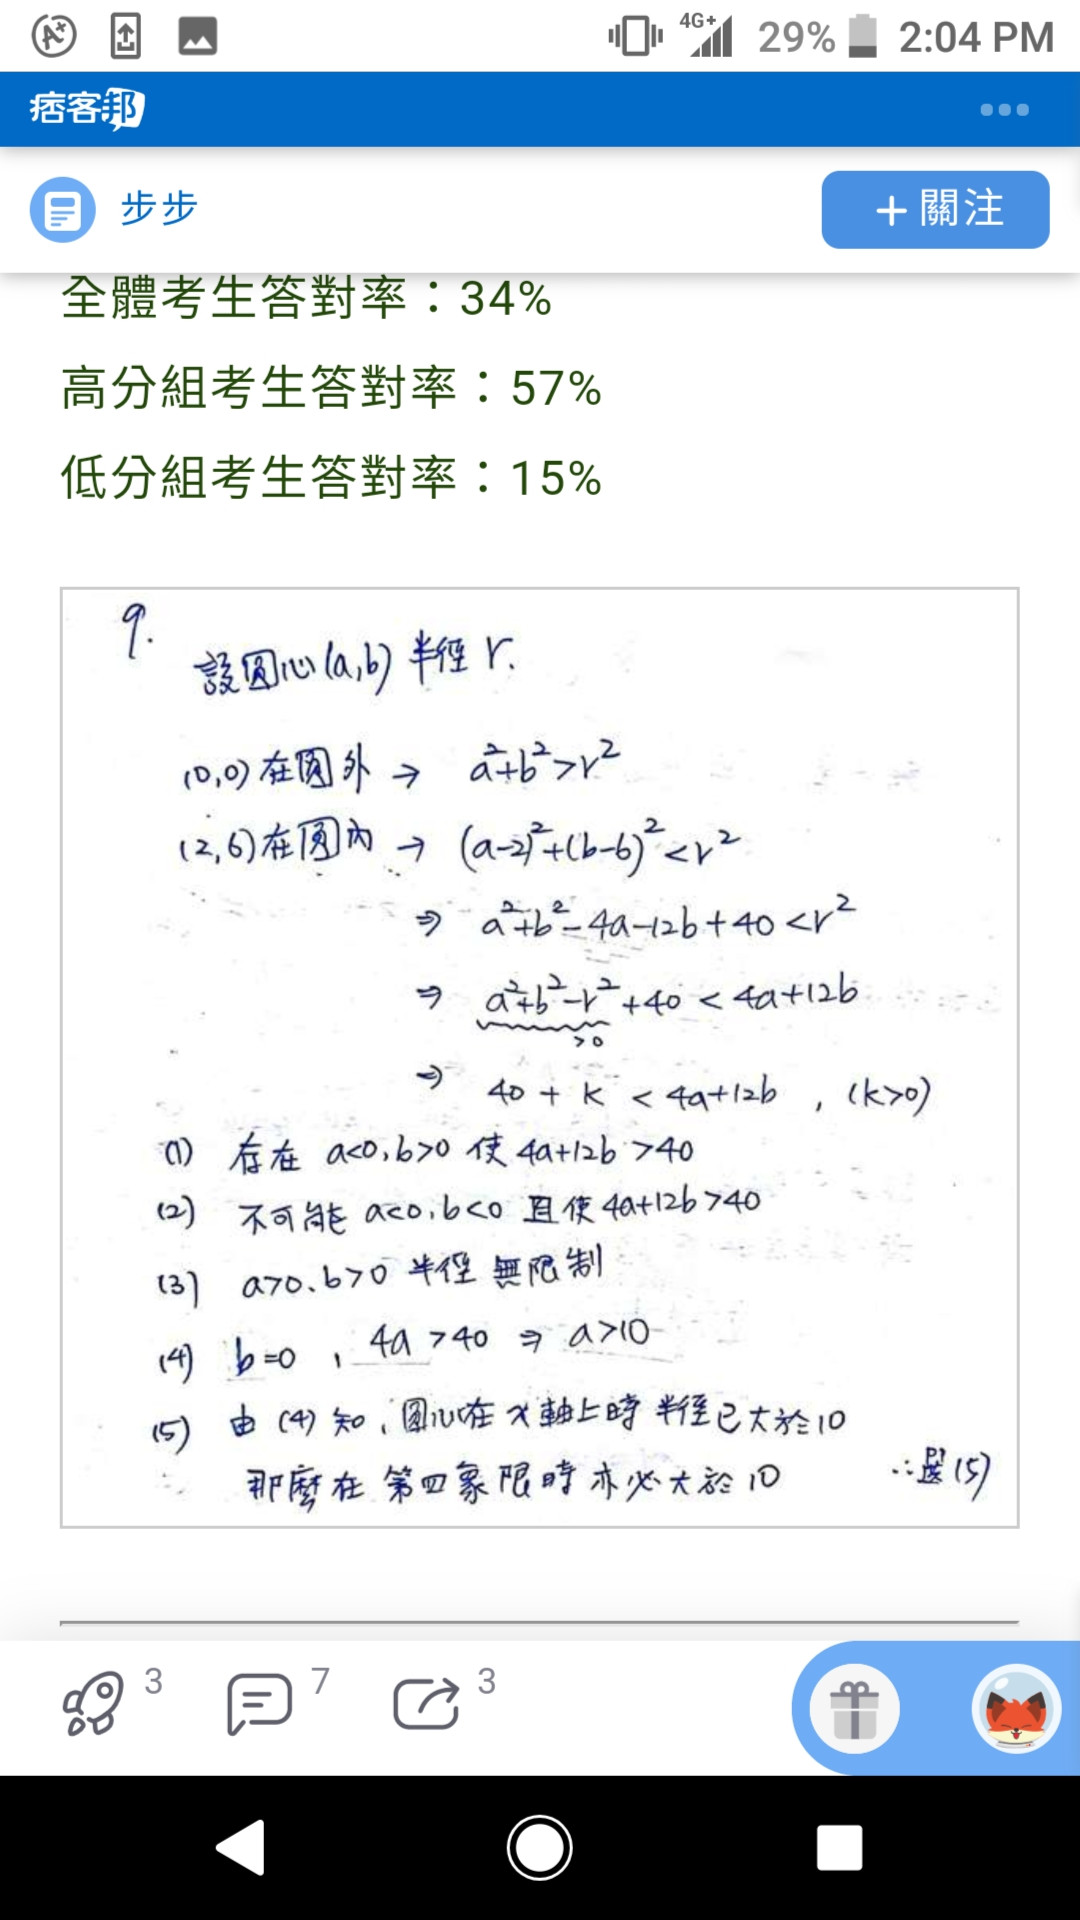 A+
4G+ 29% 2:04 PM
痞客邦
步步
+ 關注
全體考生答對率：34%
高分組考生答對率：57%
低分組考生答對率：15%
9.
設圓心(a,b) 半徑 r.
(0,0) 在圓外 → a²+b²>r²
(2,6) 在圓內 → (a-2)²+(b-6)²<r²
⇒ a²+b²-4a-12b+40<r²
⇒ a²+b²-r²+40<4a+12b
>0
⇒ 40+k<4a+12b , (k>0)
(1) 存在 a<0,b>0 使 4a+12b>40
(2) 不可能 a<0,b<0 且使 4a+12b>40
(3) a>0.b>0 半徑無限制
(4) b=0 , 4a>40 ⇒ a>10
(5) 由 (4) 知,圓心在 x 軸上時 半徑已大於10
那麼在 第四象限時 亦必大於 10 ∴選(5)
3 7 3